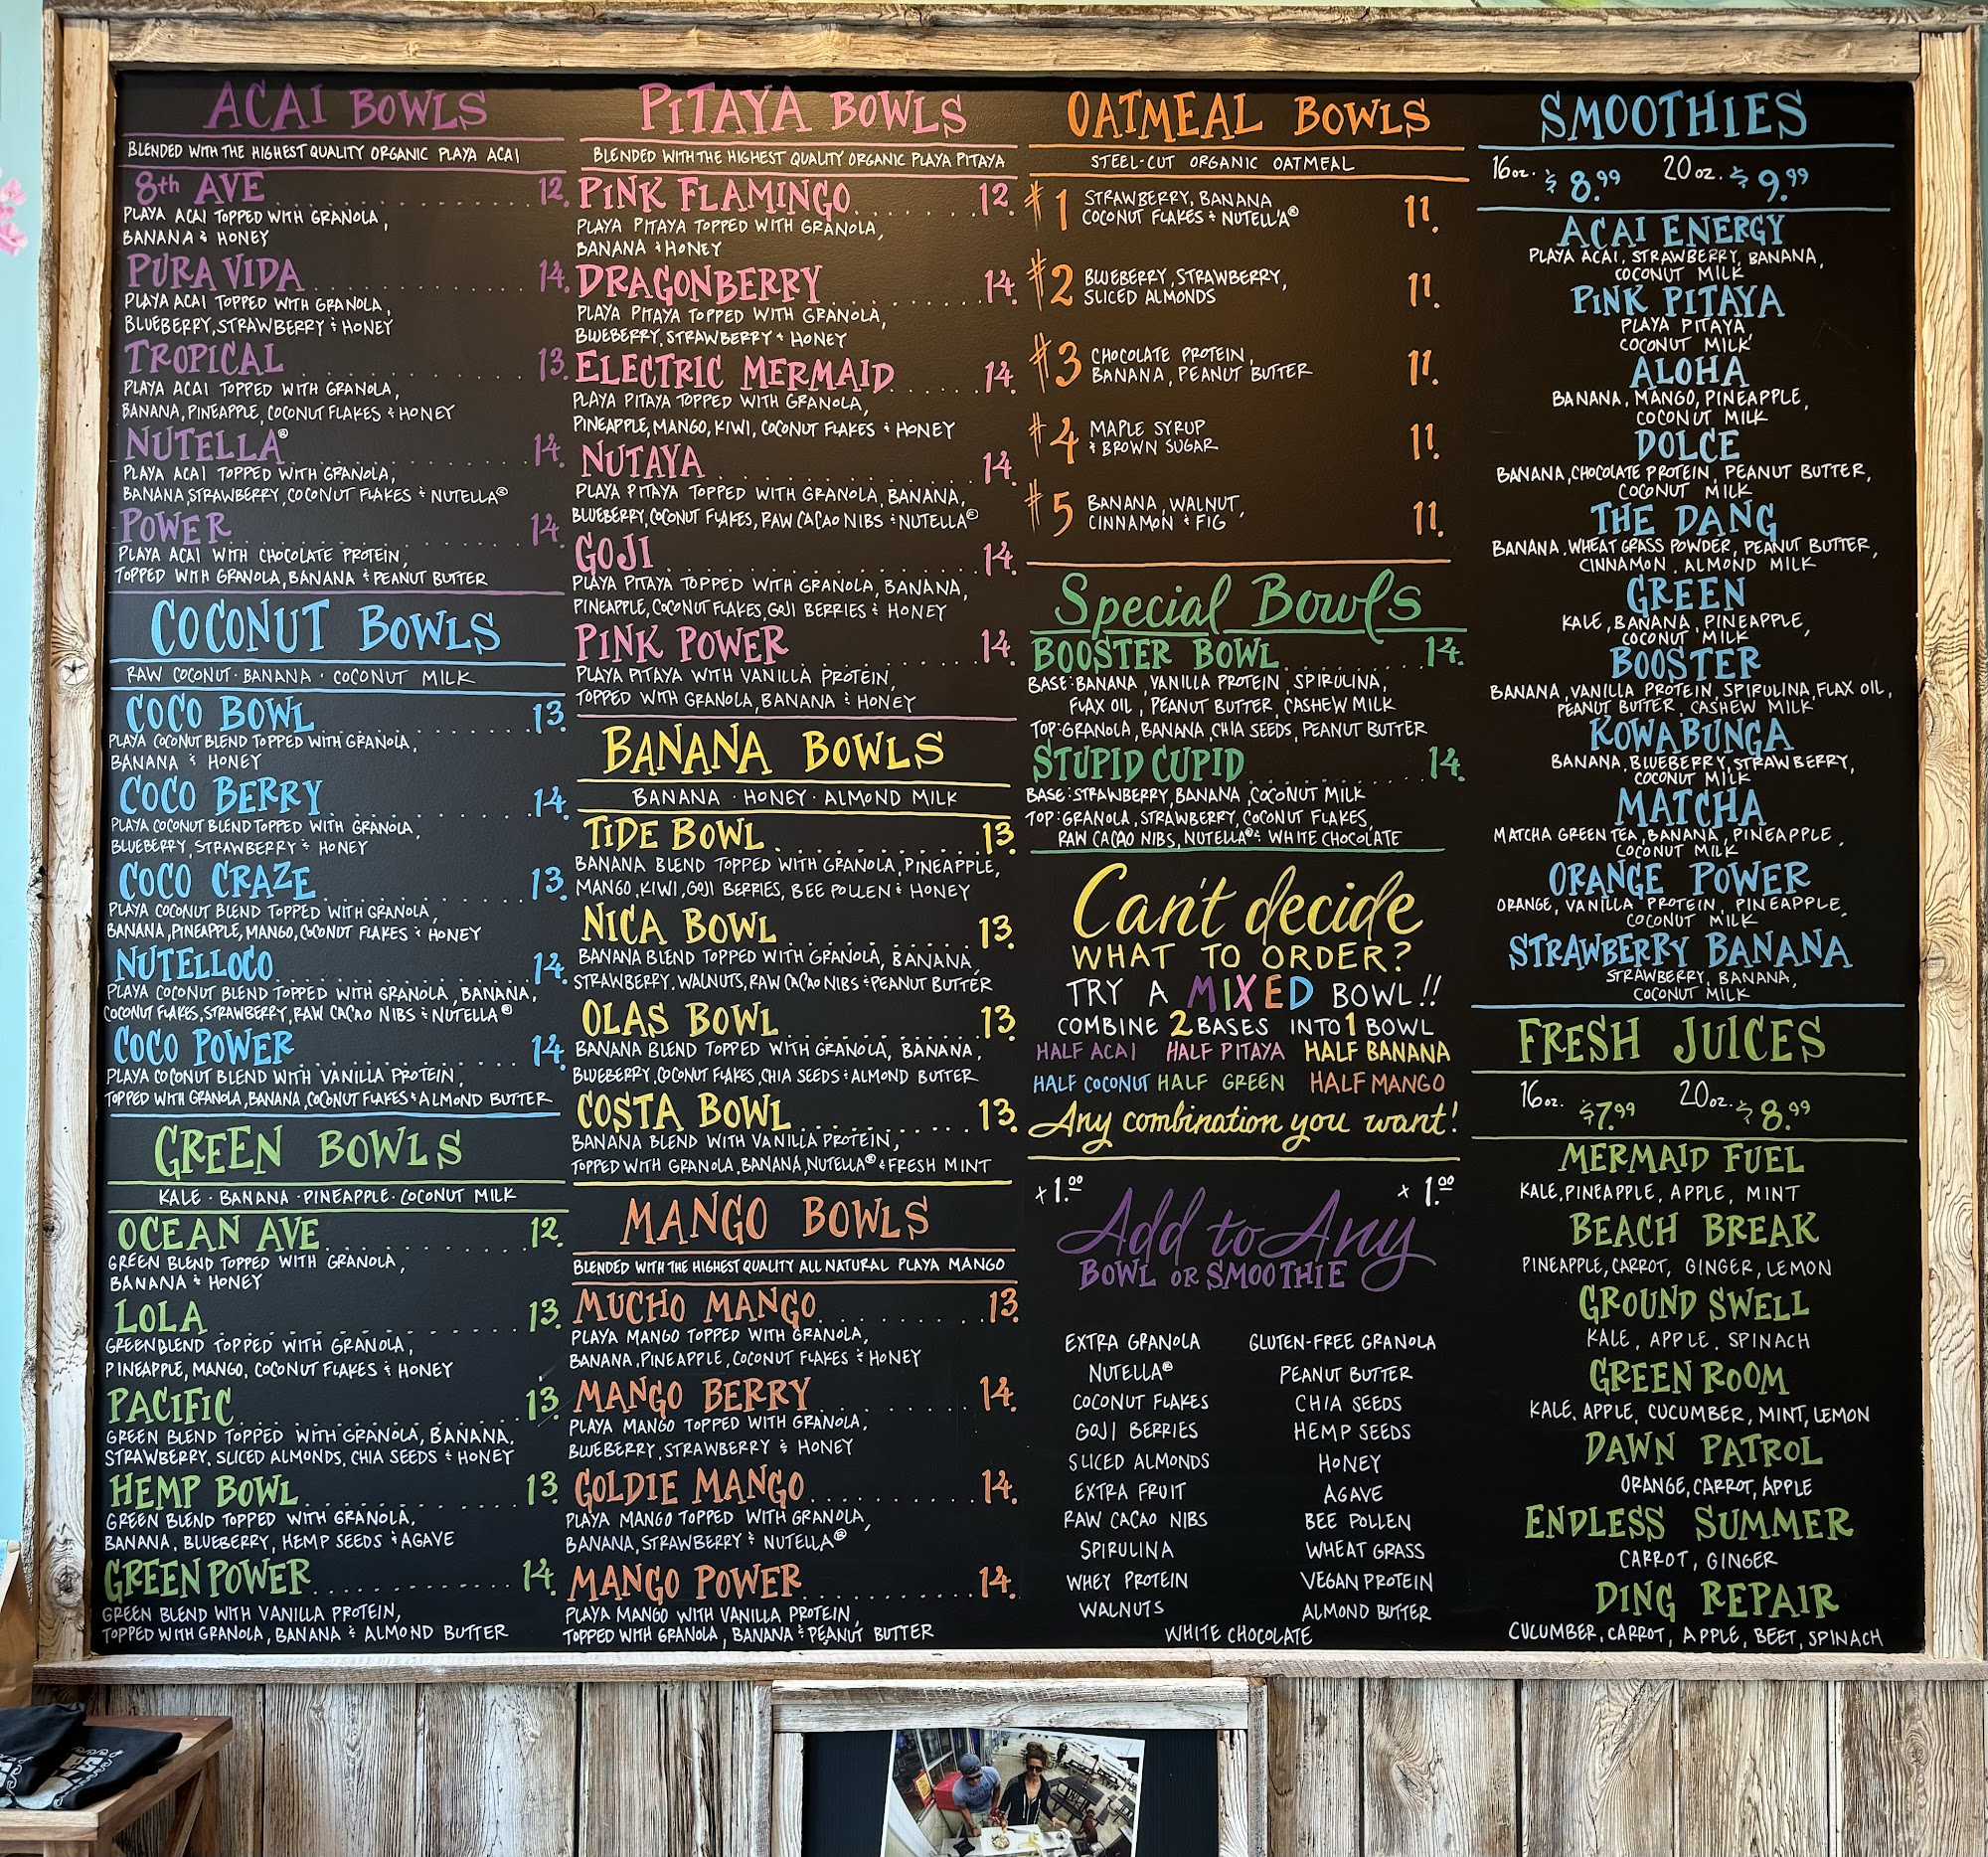 ACAI BOWLS
BLENDED WITH THE HIGHEST QUALITY ORGANIC PLAYA ACAI
8th AVE 12.
PLAYA ACAI TOPPED WITH GRANOLA,
BANANA & HONEY
PURA VIDA 14.
PLAYA ACAI TOPPED WITH GRANOLA,
BLUEBERRY, STRAWBERRY & HONEY
TROPICAL 13.
PLAYA ACAI TOPPED WITH GRANOLA,
BANANA, PINEAPPLE, COCONUT FLAKES & HONEY
NUTELLA® 14.
PLAYA ACAI TOPPED WITH GRANOLA,
BANANA, STRAWBERRY, COCONUT FLAKES & NUTELLA®
POWER 14.
PLAYA ACAI WITH CHOCOLATE PROTEIN,
TOPPED WITH GRANOLA, BANANA & PEANUT BUTTER
COCONUT BOWLS
RAW COCONUT · BANANA · COCONUT MILK
COCO BOWL 13.
PLAYA COCONUT BLEND TOPPED WITH GRANOLA,
BANANA & HONEY
COCO BERRY 14.
PLAYA COCONUT BLEND TOPPED WITH GRANOLA,
BLUEBERRY, STRAWBERRY & HONEY
COCO CRAZE 13.
PLAYA COCONUT BLEND TOPPED WITH GRANOLA,
BANANA, PINEAPPLE, MANGO, COCONUT FLAKES & HONEY
NUTELLOCO 14.
PLAYA COCONUT BLEND TOPPED WITH GRANOLA, BANANA,
COCONUT FLAKES, STRAWBERRY, RAW CACAO NIBS & NUTELLA®
COCO POWER 14.
PLAYA COCONUT BLEND WITH VANILLA PROTEIN,
TOPPED WITH GRANOLA, BANANA, COCONUT FLAKES & ALMOND BUTTER
GREEN BOWLS
KALE · BANANA · PINEAPPLE · COCONUT MILK
OCEAN AVE 12.
GREEN BLEND TOPPED WITH GRANOLA,
BANANA & HONEY
LOLA 13.
GREEN BLEND TOPPED WITH GRANOLA,
PINEAPPLE, MANGO, COCONUT FLAKES & HONEY
PACIFIC 13.
GREEN BLEND TOPPED WITH GRANOLA, BANANA,
STRAWBERRY, SLICED ALMONDS, CHIA SEEDS & HONEY
HEMP BOWL 13.
GREEN BLEND TOPPED WITH GRANOLA,
BANANA, BLUEBERRY, HEMP SEEDS & AGAVE
GREEN POWER 14.
GREEN BLEND WITH VANILLA PROTEIN,
TOPPED WITH GRANOLA, BANANA & ALMOND BUTTER
PITAYA BOWLS
BLENDED WITH THE HIGHEST QUALITY ORGANIC PLAYA PITAYA
PINK FLAMINGO 12.
PLAYA PITAYA TOPPED WITH GRANOLA,
BANANA & HONEY
DRAGONBERRY 14.
PLAYA PITAYA TOPPED WITH GRANOLA,
BLUEBERRY, STRAWBERRY & HONEY
ELECTRIC MERMAID 14.
PLAYA PITAYA TOPPED WITH GRANOLA,
PINEAPPLE, MANGO, KIWI, COCONUT FLAKES & HONEY
NUTAYA 14.
PLAYA PITAYA TOPPED WITH GRANOLA, BANANA,
BLUEBERRY, COCONUT FLAKES, RAW CACAO NIBS & NUTELLA®
GOJI 14.
PLAYA PITAYA TOPPED WITH GRANOLA, BANANA,
PINEAPPLE, COCONUT FLAKES, GOJI BERRIES & HONEY
PINK POWER 14.
PLAYA PITAYA WITH VANILLA PROTEIN,
TOPPED WITH GRANOLA, BANANA & HONEY
BANANA BOWLS
BANANA · HONEY · ALMOND MILK
TIDE BOWL 13.
BANANA BLEND TOPPED WITH GRANOLA, PINEAPPLE,
MANGO, KIWI, GOJI BERRIES, BEE POLLEN & HONEY
NICA BOWL 13.
BANANA BLEND TOPPED WITH GRANOLA, BANANA,
STRAWBERRY, WALNUTS, RAW CACAO NIBS & PEANUT BUTTER
OLAS BOWL 13.
BANANA BLEND TOPPED WITH GRANOLA, BANANA,
BLUEBERRY, COCONUT FLAKES, CHIA SEEDS & ALMOND BUTTER
COSTA BOWL 13.
BANANA BLEND WITH VANILLA PROTEIN,
TOPPED WITH GRANOLA, BANANA, NUTELLA® & FRESH MINT
MANGO BOWLS
BLENDED WITH THE HIGHEST QUALITY ALL NATURAL PLAYA MANGO
MUCHO MANGO 13.
PLAYA MANGO TOPPED WITH GRANOLA,
BANANA, PINEAPPLE, COCONUT FLAKES & HONEY
MANGO BERRY 14.
PLAYA MANGO TOPPED WITH GRANOLA,
BLUEBERRY, STRAWBERRY & HONEY
GOLDIE MANGO 14.
PLAYA MANGO TOPPED WITH GRANOLA,
BANANA, STRAWBERRY & NUTELLA®
MANGO POWER 14.
PLAYA MANGO WITH VANILLA PROTEIN,
TOPPED WITH GRANOLA, BANANA & PEANUT BUTTER
OATMEAL BOWLS
STEEL-CUT ORGANIC OATMEAL
#1 STRAWBERRY, BANANA 11.
COCONUT FLAKES & NUTELLA®
#2 BLUEBERRY, STRAWBERRY, 11.
SLICED ALMONDS
#3 CHOCOLATE PROTEIN, 11.
BANANA, PEANUT BUTTER
#4 MAPLE SYRUP 11.
& BROWN SUGAR
#5 BANANA, WALNUT, 11.
CINNAMON & FIG
Special Bowls
BOOSTER BOWL 14.
BASE: BANANA, VANILLA PROTEIN, SPIRULINA,
FLAX OIL, PEANUT BUTTER, CASHEW MILK
TOP: GRANOLA, BANANA, CHIA SEEDS, PEANUT BUTTER
STUPID CUPID 14.
BASE: STRAWBERRY, BANANA, COCONUT MILK
TOP: GRANOLA, STRAWBERRY, COCONUT FLAKES,
RAW CACAO NIBS, NUTELLA® & WHITE CHOCOLATE
Can't decide
WHAT TO ORDER?
TRY A MIXED BOWL!!
COMBINE 2 BASES INTO 1 BOWL
HALF ACAI HALF PITAYA HALF BANANA
HALF COCONUT HALF GREEN HALF MANGO
Any combination you want!
x 1.00 x 1.00
Add to Any
BOWL OR SMOOTHIE
EXTRA GRANOLA GLUTEN-FREE GRANOLA
NUTELLA® PEANUT BUTTER
COCONUT FLAKES CHIA SEEDS
GOJI BERRIES HEMP SEEDS
SLICED ALMONDS HONEY
EXTRA FRUIT AGAVE
RAW CACAO NIBS BEE POLLEN
SPIRULINA WHEAT GRASS
WHEY PROTEIN VEGAN PROTEIN
WALNUTS ALMOND BUTTER
WHITE CHOCOLATE
SMOOTHIES
16oz. $8.99 20oz. $9.99
ACAI ENERGY
PLAYA ACAI, STRAWBERRY, BANANA,
COCONUT MILK
PINK PITAYA
PLAYA PITAYA,
COCONUT MILK
ALOHA
BANANA, MANGO, PINEAPPLE,
COCONUT MILK
DOLCE
BANANA, CHOCOLATE PROTEIN, PEANUT BUTTER,
COCONUT MILK
THE DANG
BANANA, WHEAT GRASS POWDER, PEANUT BUTTER,
CINNAMON, ALMOND MILK
GREEN
KALE, BANANA, PINEAPPLE,
COCONUT MILK
BOOSTER
BANANA, VANILLA PROTEIN, SPIRULINA, FLAX OIL,
PEANUT BUTTER, CASHEW MILK
KOWABUNGA
BANANA, BLUEBERRY, STRAWBERRY,
COCONUT MILK
MATCHA
MATCHA GREEN TEA, BANANA, PINEAPPLE,
COCONUT MILK
ORANGE POWER
ORANGE, VANILLA PROTEIN, PINEAPPLE,
COCONUT MILK
STRAWBERRY BANANA
STRAWBERRY, BANANA,
COCONUT MILK
FRESH JUICES
16oz. $7.99 20oz. $8.99
MERMAID FUEL
KALE, PINEAPPLE, APPLE, MINT
BEACH BREAK
PINEAPPLE, CARROT, GINGER, LEMON
GROUND SWELL
KALE, APPLE, SPINACH
GREEN ROOM
KALE, APPLE, CUCUMBER, MINT, LEMON
DAWN PATROL
ORANGE, CARROT, APPLE
ENDLESS SUMMER
CARROT, GINGER
DING REPAIR
CUCUMBER, CARROT, APPLE, BEET, SPINACH